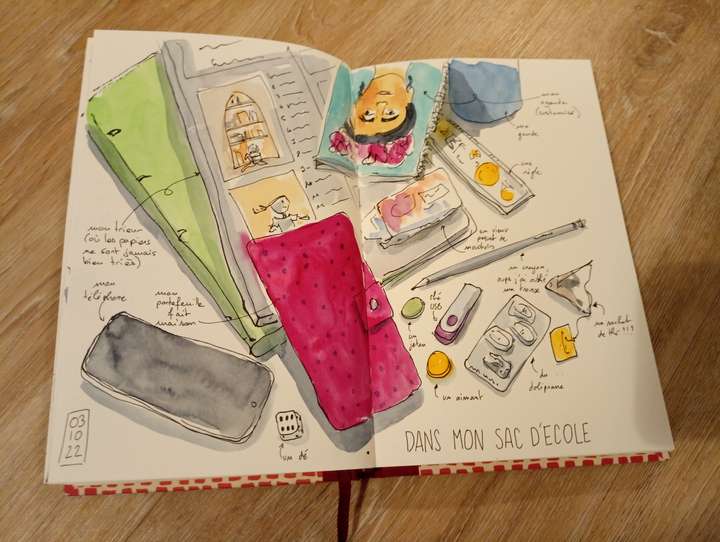 mon trieur
(où les papiers
ne sont jamais
bien triés)
mon
téléphone
mon
portefeuille
fait
maison
03
10
22
un dé
mon
agenda
(customisé)
une
gourde
une
règle
un vieux
paquet de
mouchoirs
un crayon,
une trousse
clé
USB
un
jeton
un aimant
du
doliprane
un sachet
de thé !!!
DANS MON SAC D'ECOLE